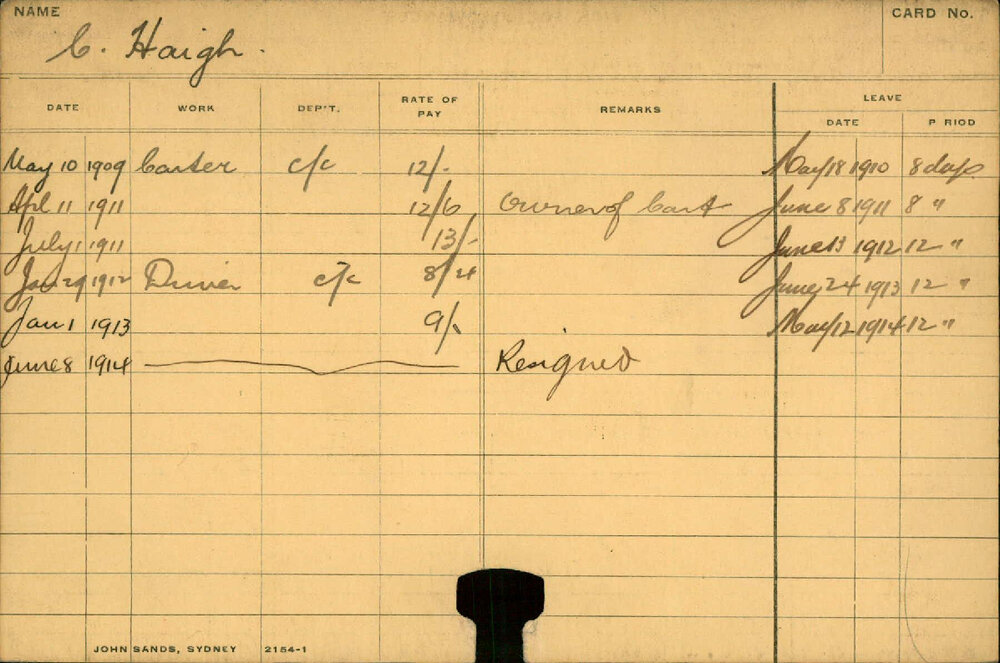 NAME
CARD No.
C. Haigh.
DATE WORK DEP'T. RATE OF PAY REMARKS LEAVE
DATE P RIOD
May 10 1909 Carter c/c 12/- May 18 1910 8 days
Apl 11 1911 12/6 Owner of Cart June 8 1911 8 "
July 1 1911 13/- June 13 1912 12 "
Jan 29 1912 Driver c/c 8/4 June 24 1913 12 "
Jan 1 1913 9/- May 12 1914 12 "
June 8 1914 Resigned
JOHN SANDS, SYDNEY 2154-1